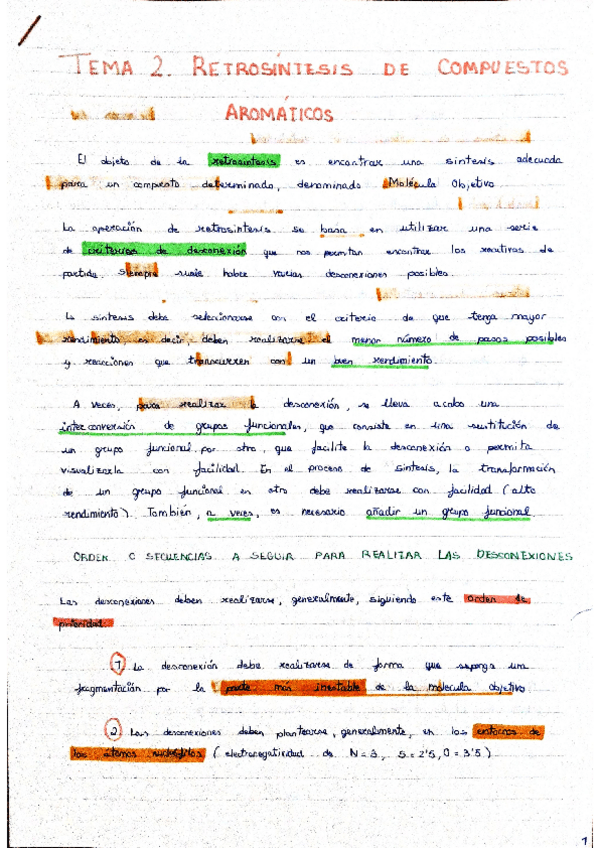 TEMA 2. RETROSÍNTESIS DE COMPUESTOS
AROMÁTICOS
El objeto de la retrosíntesis es encontrar una síntesis adecuada
para un compuesto determinado, denominado Molécula Objetivo
La operación de retrosíntesis se basa en utilizar una serie
de criterios de desconexión que nos permitan encontrar los reactivos de
partida. Siempre suele haber varias desconexiones posibles.
La síntesis debe seleccionarse con el criterio de que tenga mayor
rendimiento es decir, deben realizarse el menor número de pasos posibles
y reacciones que transcurren con un buen rendimiento.
A veces, para realizar la desconexión, se lleva acabo una
interconversión de grupos funcionales, que consiste en una sustitución de
un grupo funcional por otro, que facilite la desconexión o permita
visualizarla con facilidad. En el proceso de síntesis, la transformación
de un grupo funcional en otro debe realizarse con facilidad (alto
rendimiento). También, a veces, es necesario añadir un grupo funcional
ORDEN O SECUENCIAS A SEGUIR PARA REALIZAR LAS DESCONEXIONES
Las desconexiones deben realizarse, generalmente, siguiendo este orden de
prioridad:
1 La desconexión debe realizarse de forma que suponga una
fragmentación por la parte más inestable de la molécula objetivo
2 Las desconexiones deben plantearse, generalmente, en los entornos de
los átomos nucleófilos (electronegatividad de N=3, S=2'5, O=3'5)
1